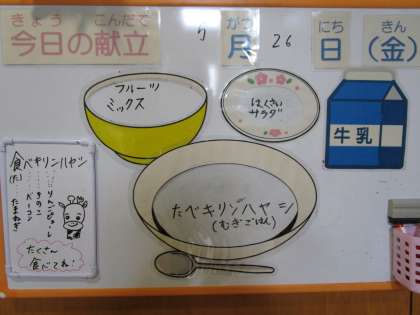 きょう こんだて
今日の献立
がつ にち きん
9 月 26 日 (金)
フルーツ
ミックス
はくさい
サラダ
牛乳
たべキリンハヤシ
(むぎごはん)
食べキリンハヤシ
(た)
りんごジュース
きのこ
ベーコン
たまねぎ
たくさん
食べてね!